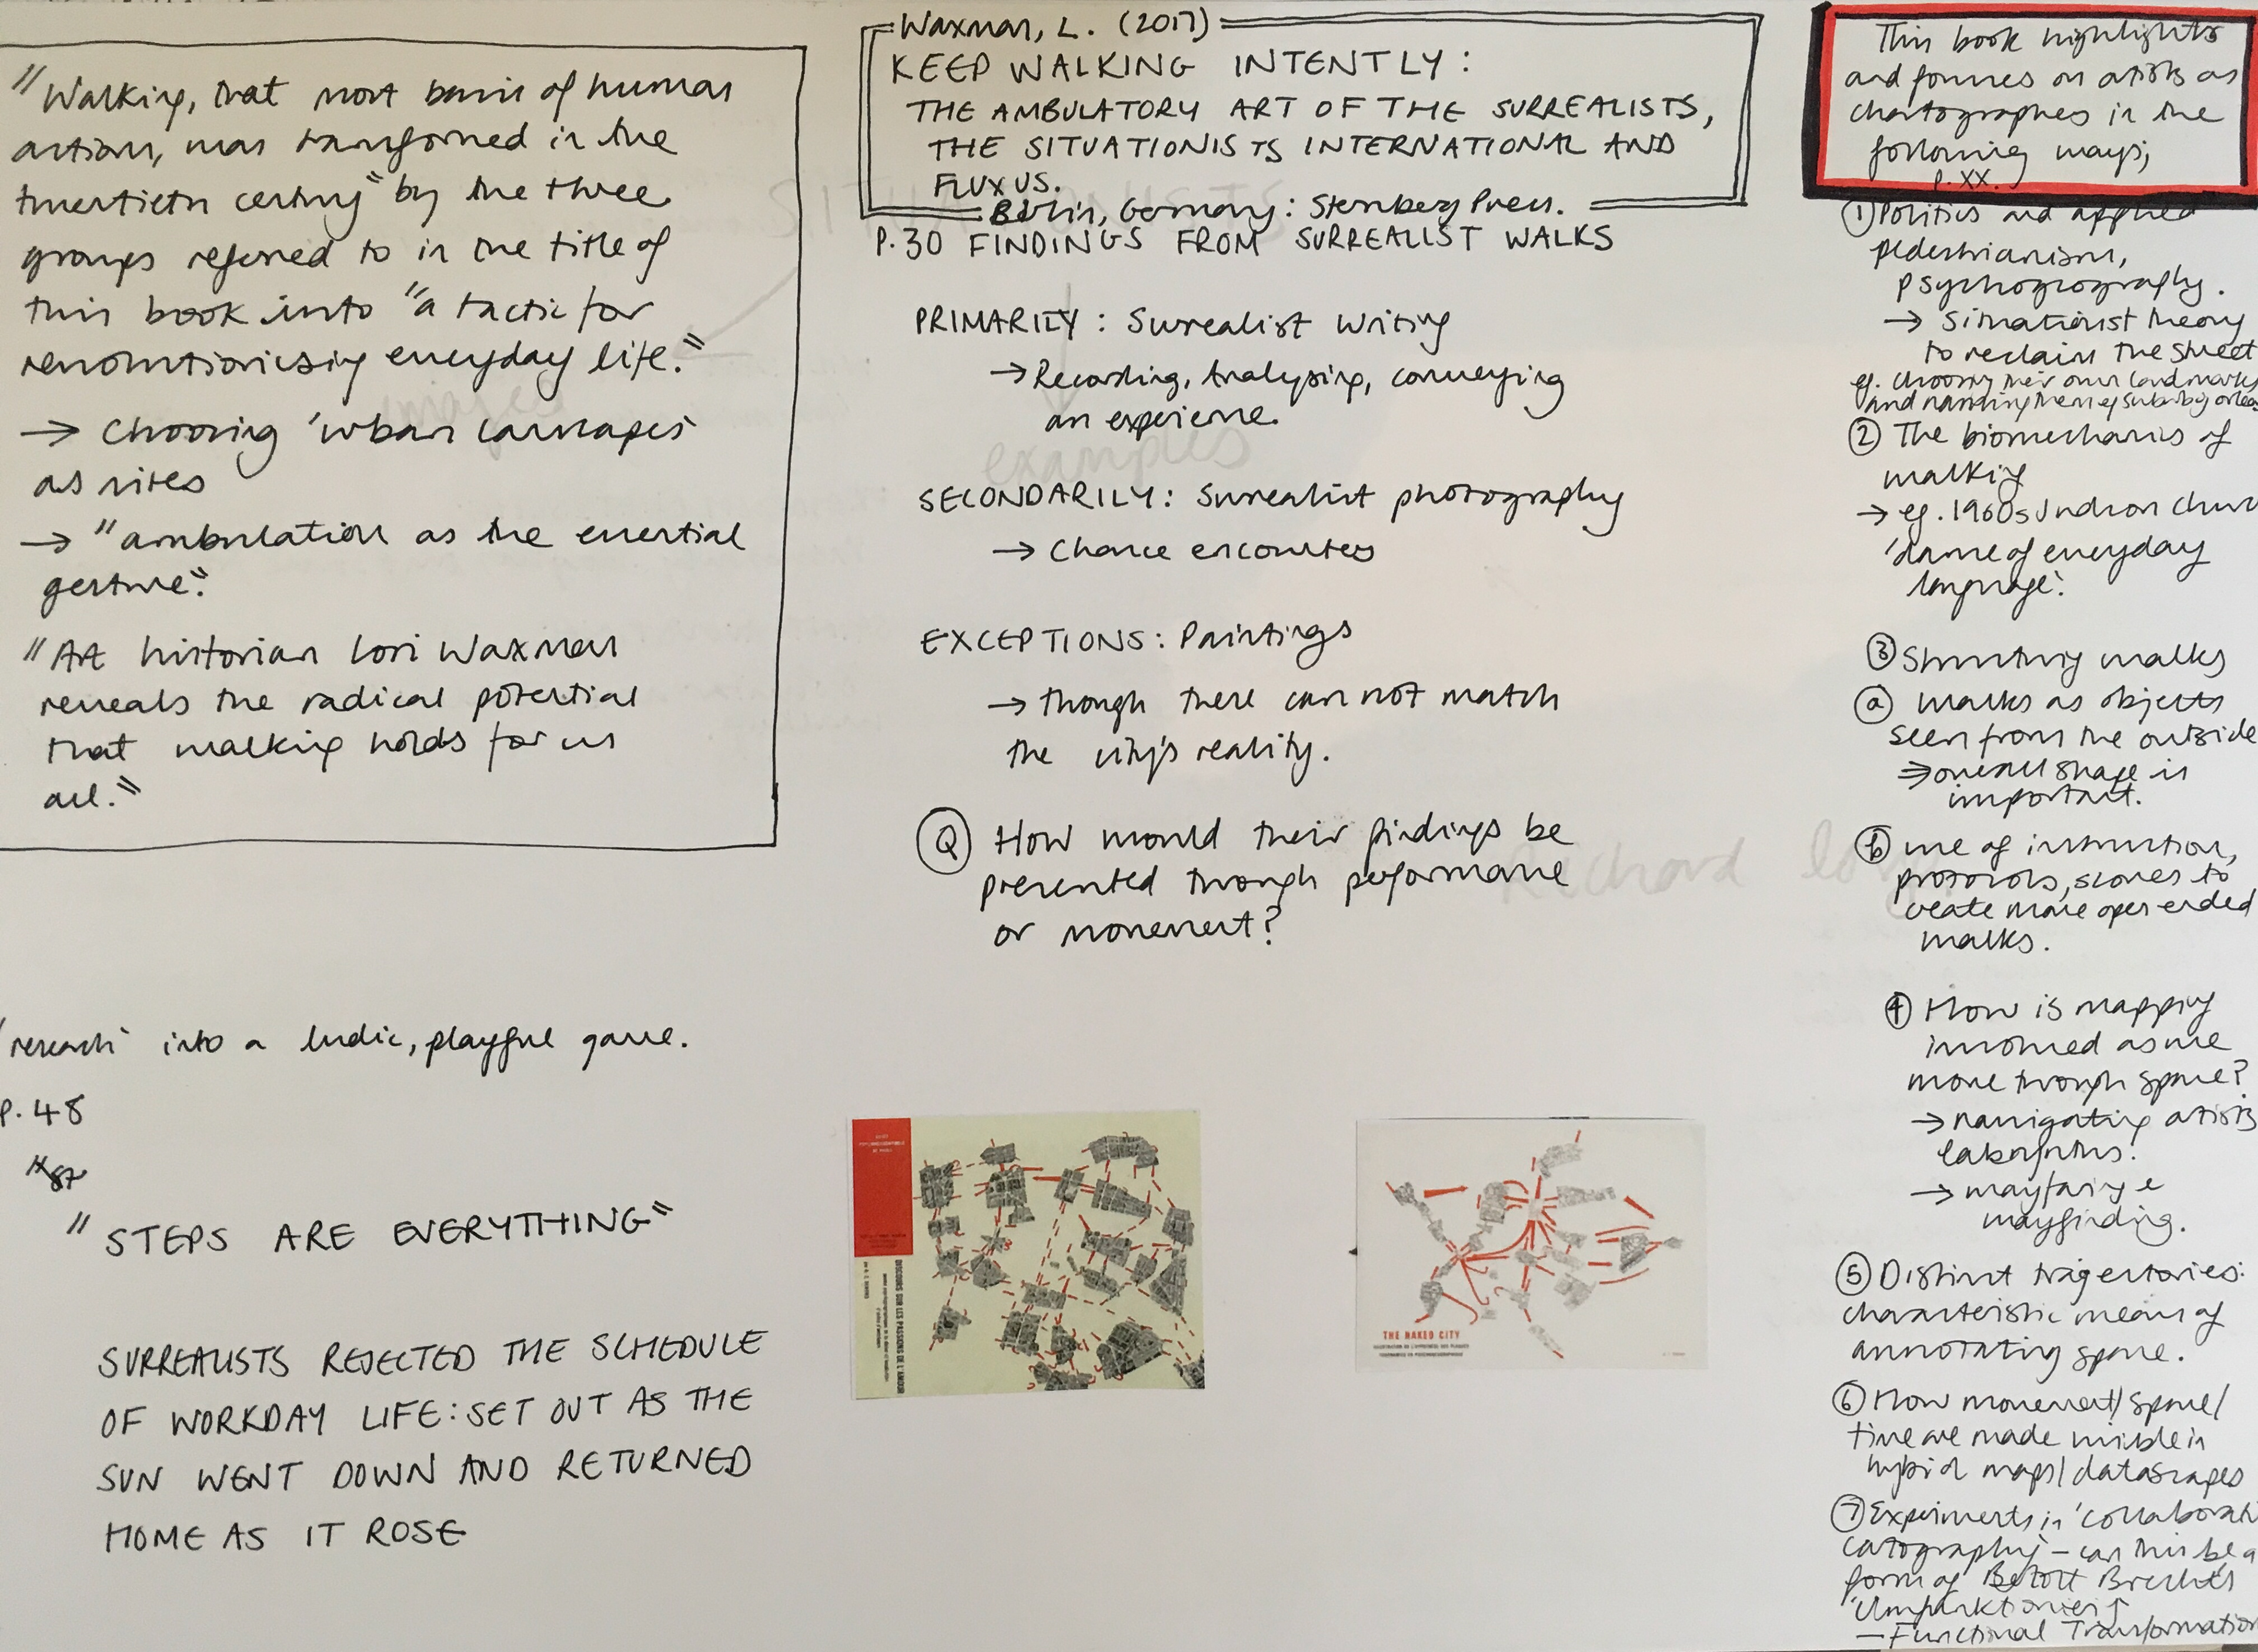 "Walking, that most basic of human
action, was transformed in the
twentieth century" by the three
groups referred to in the title of
this book into "a tactic for
revolutionising everyday life."
→ Choosing 'urban
as sites
→ "ambulation as the essential
gesture".
"Art historian Lori Waxman
reveals the radical potential
that walking holds for us
all."
research' into a ludic, playful game.
P. 48
"STEPS ARE EVERYTHING"
SURREALISTS REJECTED THE SCHEDULE
OF WORKDAY LIFE: SET OUT AS THE
SUN WENT DOWN AND RETURNED
HOME AS IT ROSE
Waxman, L. (2017)
KEEP WALKING INTENTLY:
THE AMBULATORY ART OF THE SURREALISTS,
THE SITUATIONISTS INTERNATIONAL AND
FLUXUS.
Berlin, Germany: Sternberg Press.
P.30 FINDINGS FROM SURREALIST WALKS
PRIMARILY: Surrealist Writing
→ Recording, Analysing, conveying
an experience.
examples
images
SECONDARILY: Surrealist photography
→ Chance encounters
EXCEPTIONS: Paintings
→ though these can not match
the city's reality.
Q How would their findings be
presented through performance
or movement?
Richard Long
DISCOURS SUR LES PASSIONS DE L'AMOUR
THE NAKED CITY
This book highlights
and focuses on artists as
chartographers in the
following ways;
p. XX.
① Politics and applied
pedestrianism,
psychogeography.
→ Situationist theory
to reclaim the street
eg. choosing their own landmarks
and naming them
② The biomechanics of
walking
→ eg. 1960s Judson Church
'dance of everyday
language'.
③ Structuring walks
ⓐ walks as objects
seen from the outside
⇒ overall shape is
important.
ⓑ use of instruction,
protocols, scores to
create more open ended
walks.
④ How is mapping
involved as we
move through space?
→ navigating artists
labyrinths.
→ wayfaring &
wayfinding.
⑤ Distinct tragectories:
characteristic means of
annotating space.
⑥ How movement/space/
time are made visible in
hybrid maps/datascapes
⑦ Experiments in 'collaborati
catography' – can this be a
form of Bertolt Brecht's
— Functional Transformation